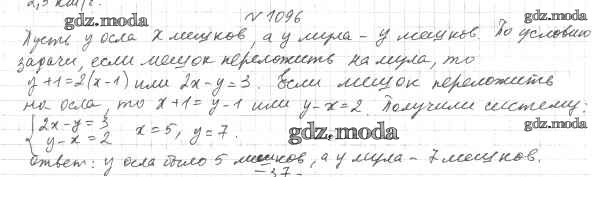 2,5 км/ч.
№ 1096
gdz.moda
gdz.moda
Пусть у осла x мешков, а у мула – y мешков. По условию
задачи, если мешок переложить на мула, то
y+1=2(x-1) или 2x-y=3. Если мешок переложить
на осла, то x+1=y-1 или y-x=2. Получили систему:
{2x-y=3
y-x=2 x=5, y=7.
gdz.moda
gdz.moda
Ответ: у осла было 5 мешков, а у мула – 7 мешков.
-37-